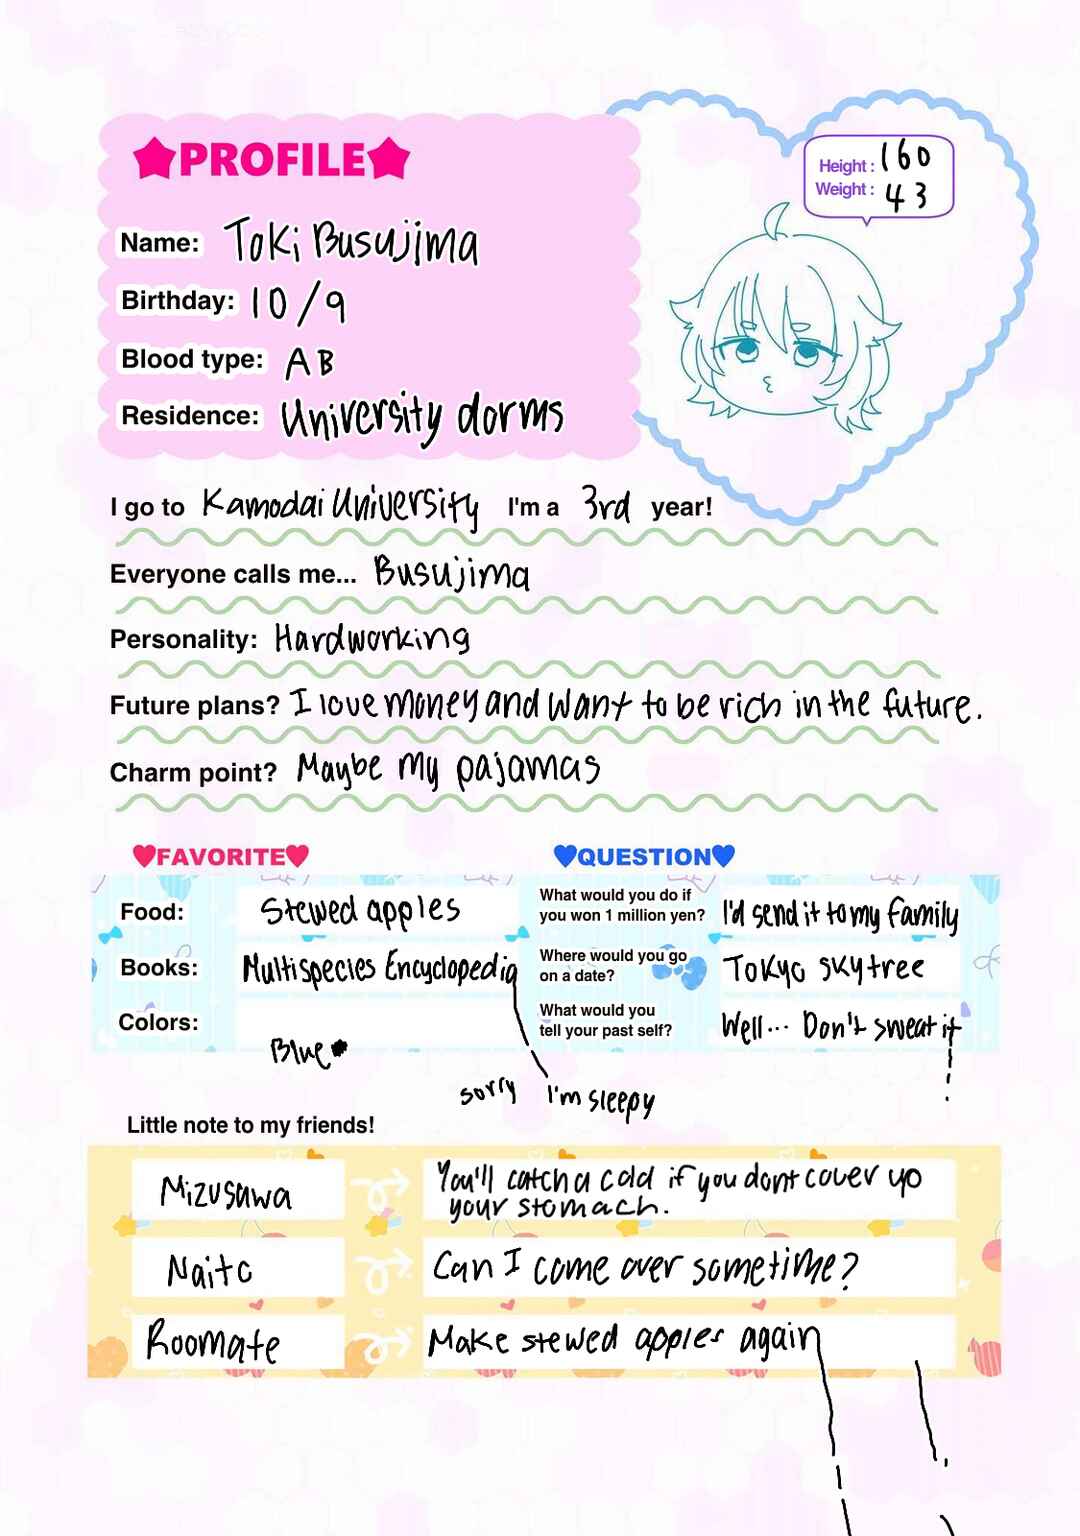 ★PROFILE★
Height: 160
Weight: 43
Name: Toki Busujima
Birthday: 10/9
Blood type: AB
Residence: University dorms
I go to Kamodai University I'm a 3rd year!
Everyone calls me... Busujima
Personality: Hardworking
Future plans? I love money and want to be rich in the future.
Charm point? Maybe my pajamas
♥FAVORITE♥
Food: Stewed apples
Books: Multispecies Encyclopedia
Colors: Blue
sorry I'm sleepy
♥QUESTION♥
What would you do if
you won 1 million yen? I'd send it to my family
Where would you go
on a date? Tokyo skytree
What would you
tell your past self? Well... Don't sweat it
Little note to my friends!
Mizusawa
You'll catch a cold if you dont cover up
your stomach.
Naito
Can I come over sometime?
Roomate
Make stewed apples again